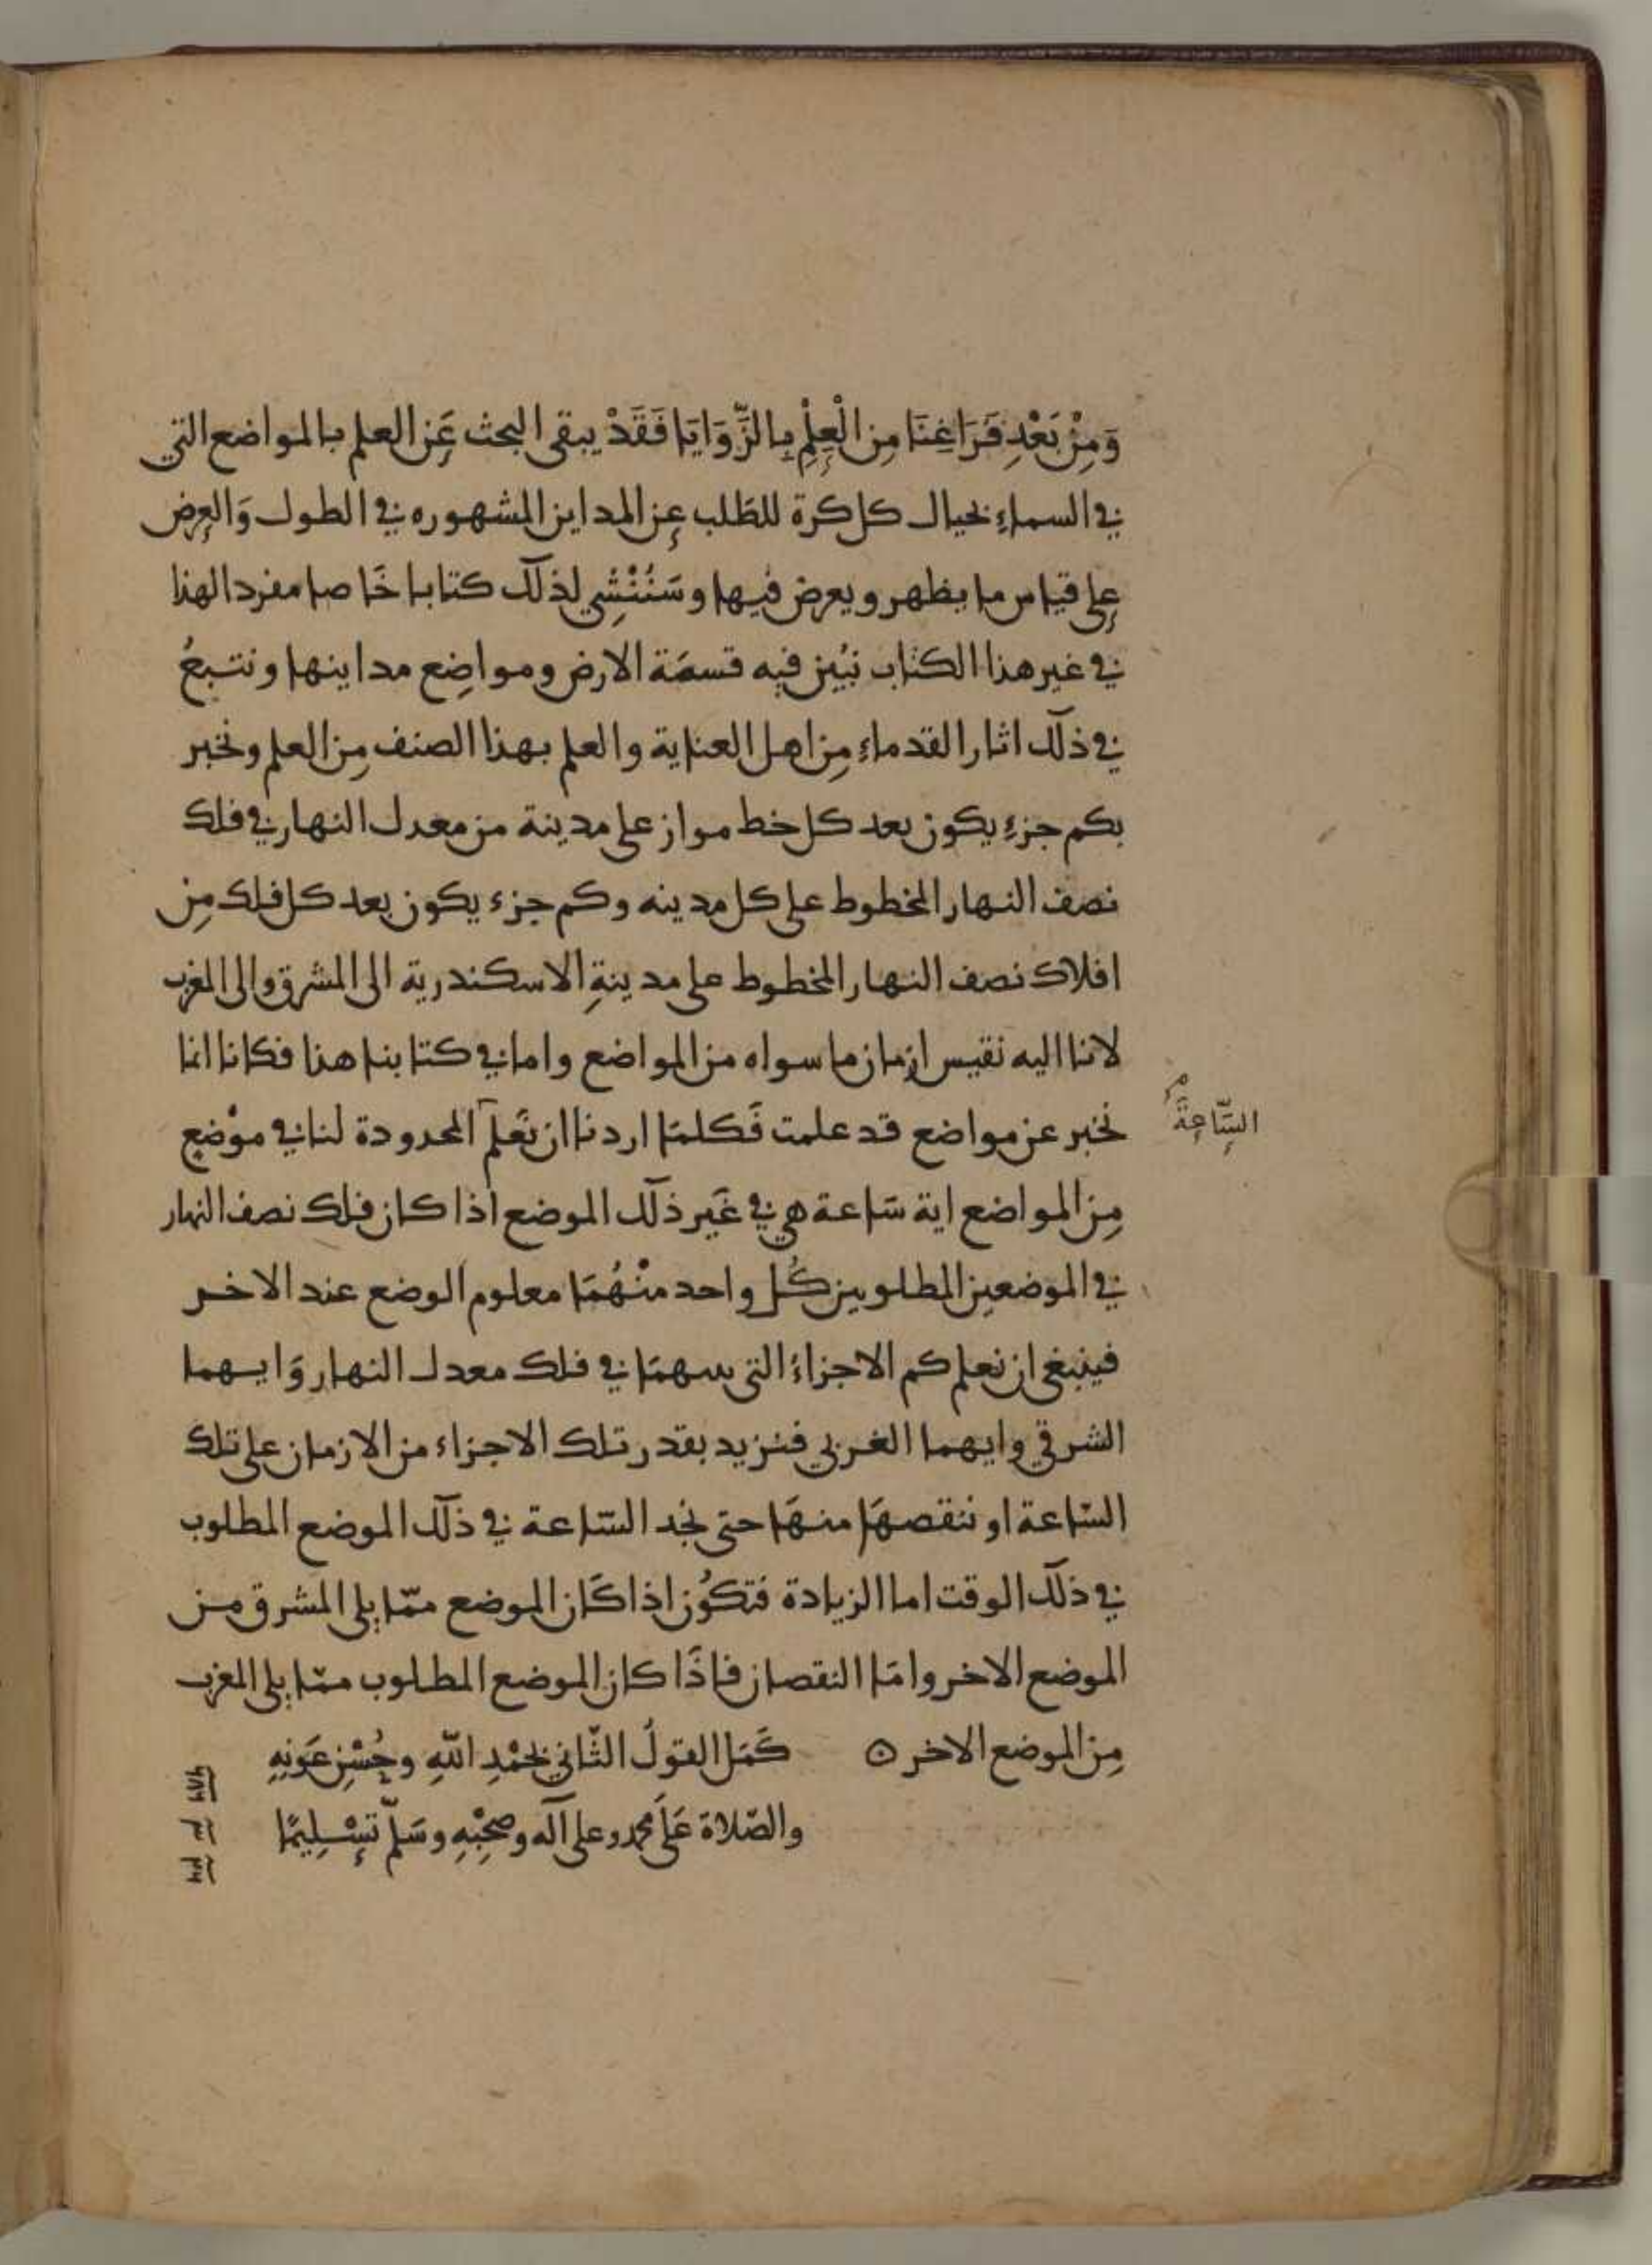 وَمِنْ بَعْدِ فَرَاغِنَا مِن الْعِلْمِ بِالزَّوَايَا فَقَدْ يبقى البحث عَن العلم بالمواضع التي
في السماءِ بحيال كل كرة للطَلب عن المداين المشهوره في الطول وَالعرض
على قياس ما يظهر ويعرض فيها وسَنُنْشِي لذلك كتابا خَاصا مفردا لهذا
في غير هذا الكتاب نبُين فيه قسمَة الارض ومواضِع مداينها ونتبعُ
في ذلك اثار القدماءِ مِن اهل العناية والعلم بهذا الصنف مِن العلم ونخبر
بكم جزءٍ يكون بعد كل خط مواز على مدينة من معدل النهار في فلك
نصف النهار المخطوط على كل مدينه وكم جزء يكون بعد كل فلك مِن
افلاك نصف النهار المخطوط على مدينةِ الاسكندرية الى المشرق والى المغرب
لاننا اليه نقيس ازمان ما سواه من المواضع واما في كتابنا هذا فكانا انما
نخبر عن مواضع قد علمت فَكلمَا اردنا ان نَعلم المحدودة لنا في موْضع
السَّاعَةَ
مِن المواضع اية سَاعة هي في غَير ذلك الموضع اذا كان فلك نصف النهار
في الموضعين المطلوبين كُل واحد منْهُمَا معلوم الوضع عند الاخر
فينبغي ان نعلم كم الاجزاءُ التي بينهمَا في فلك معدل النهار وَايهما
الشرقي وايهما الغربي فنزيد بقدر تلك الاجزاء من الازمان على تلك
السَاعة او ننقصهَا منهَا حتى نجد السَّاعة في ذلك الموضع المطلوب
في ذلك الوقت اما الزيادة فتكوُن اذا كَان الموضع ممّا يلي المشرق من
الموضع الاخر وامَا النقصان فاذَا كان الموضع المطلوب ممّا يلي المغرب
مِن الموضع الاخر ۞ كَمَل القولُ الثّاني بحَمْدِ اللهِ وحُسْنِ عَونِهِ
والصّلاة عَلَى محمد وعلى آله وصحْبِهِ وسَلّم تسْلِيمًا